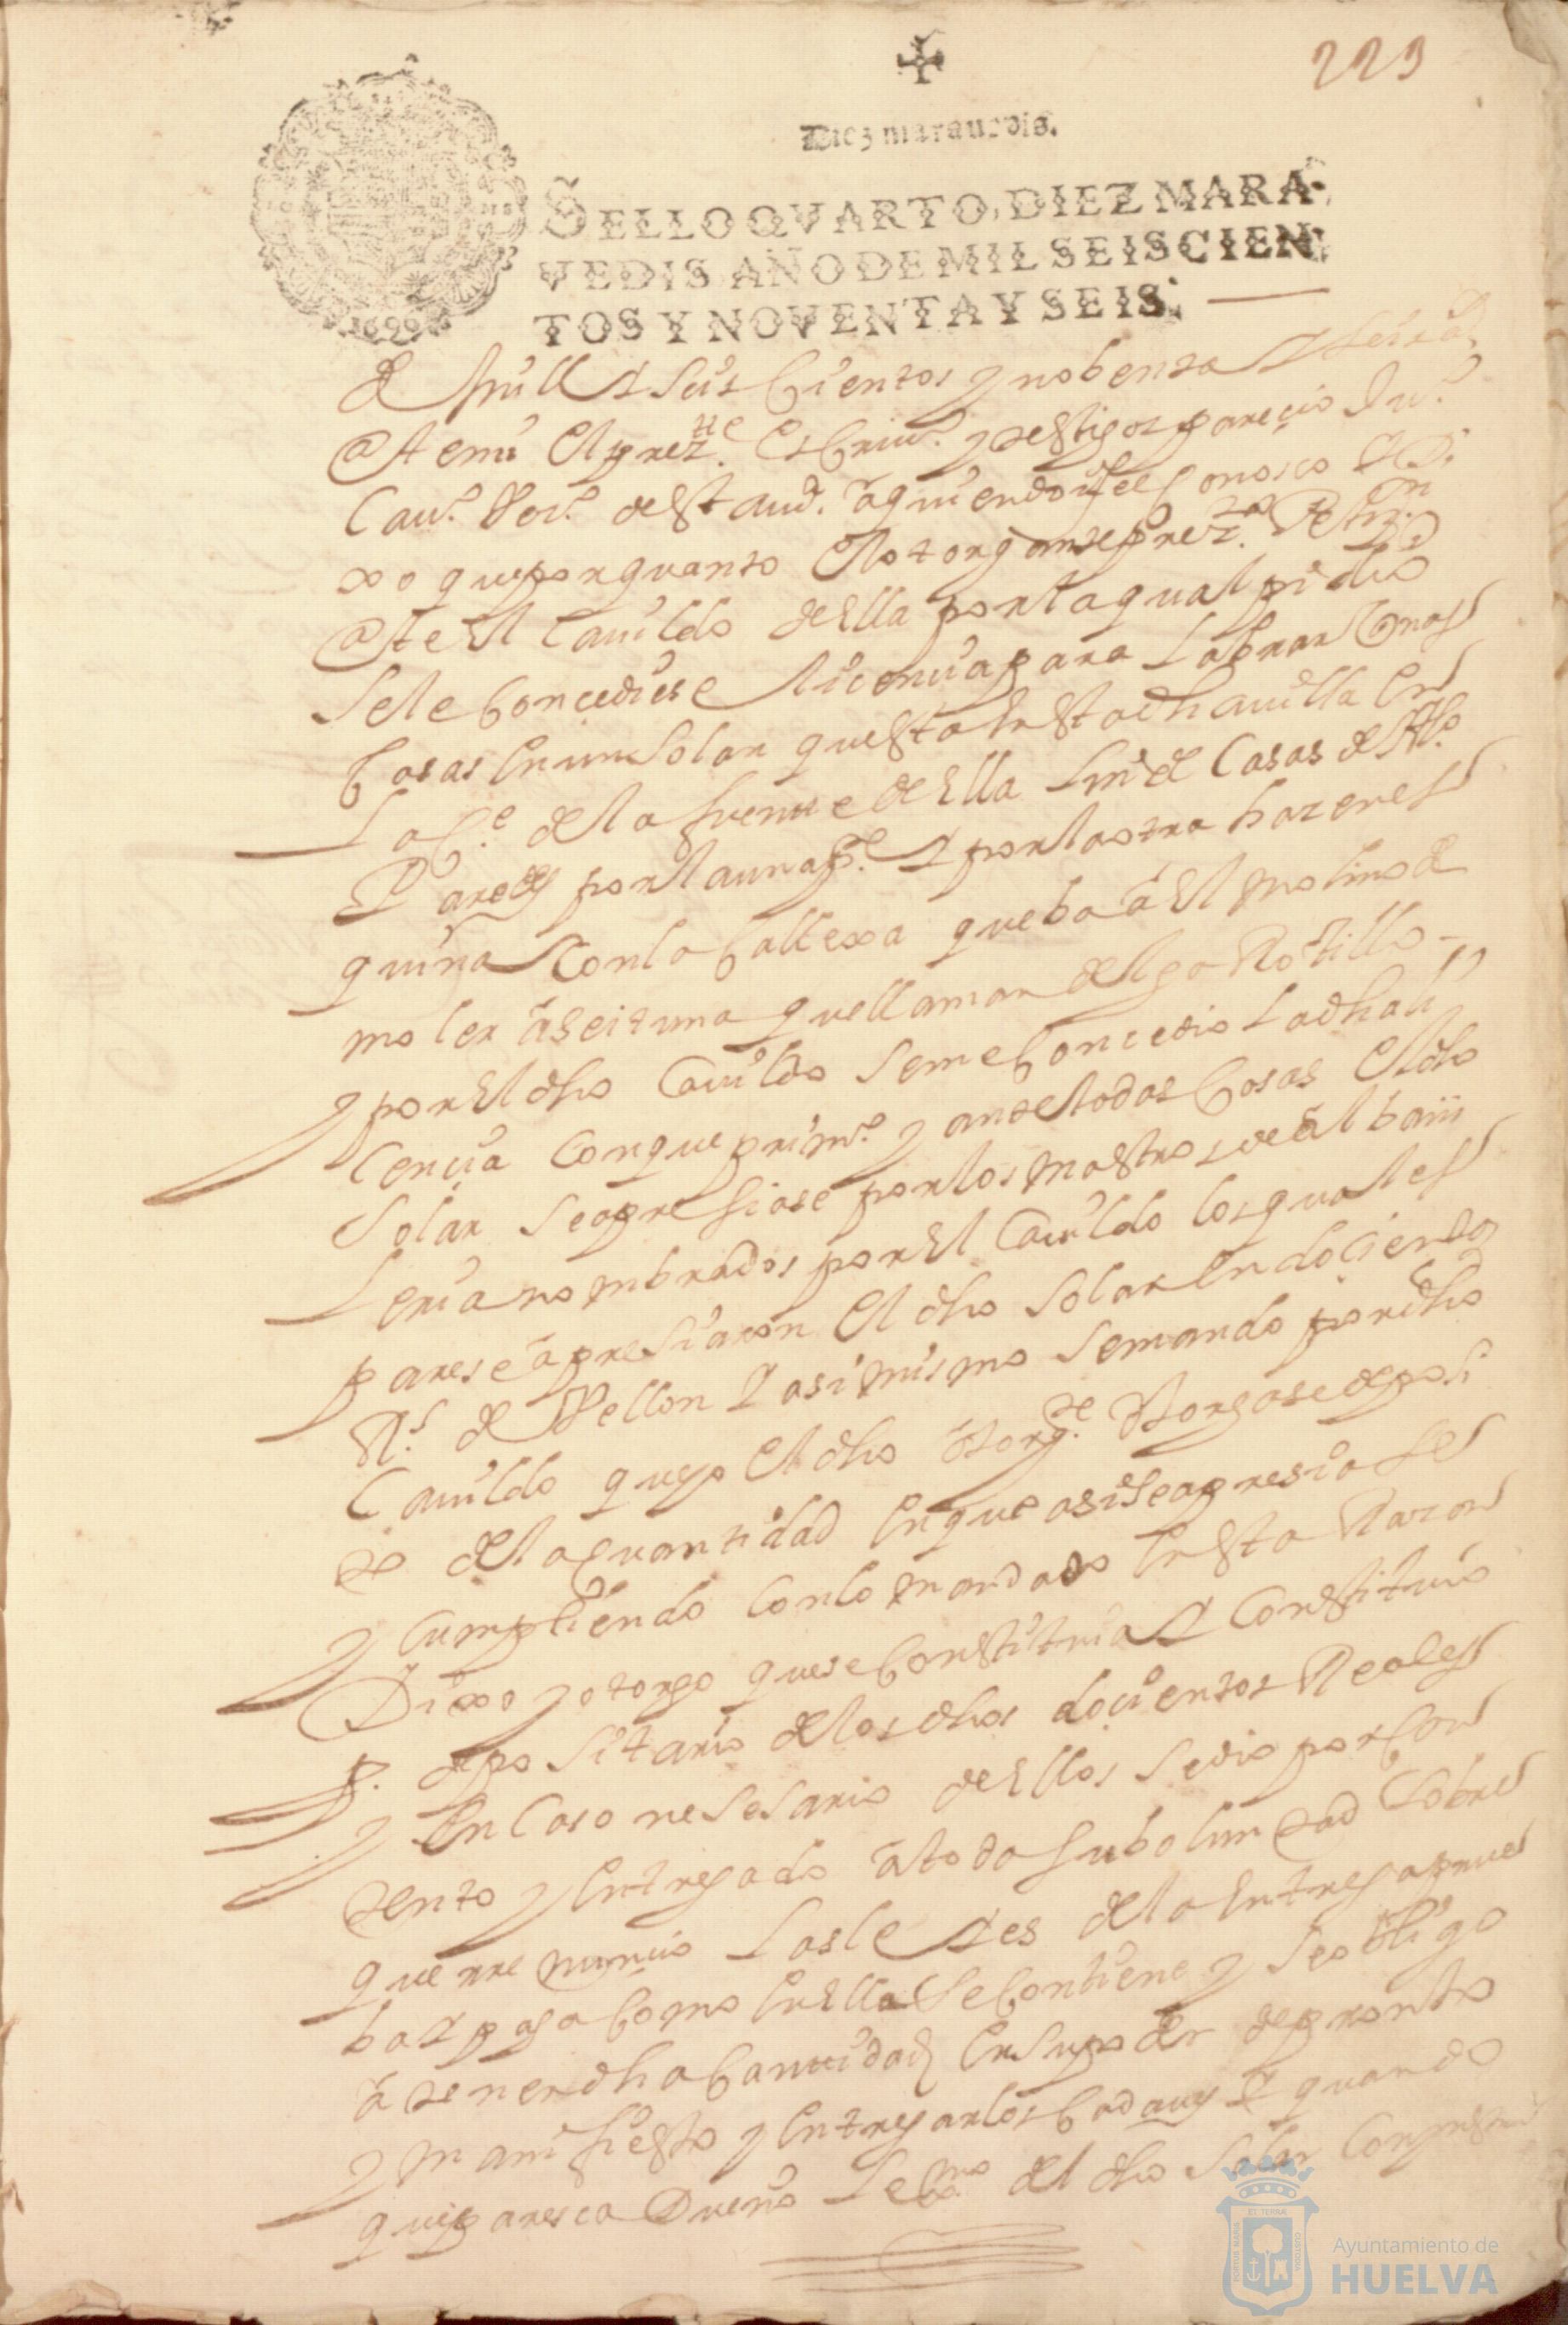 223
Diez marauedis.
SELLO QVARTO, DIEZ MARA-
VEDIS, AÑO DE MIL SEISCIEN-
TOS Y NOVENTA Y SEIS.
1699
de mill y seis cientos y nobenta y seis
Ante mi el press.te escriv.o y testigos parecio Ju.o
Cav.o Veç.o desta vi.a a quien doi fee conosco y Di
xo que por quanto el otorgante pres.to Petiz.on
Ante el Cavildo de ella por la qual pidio
se le concediese licencia para labrar Unas
casas en un solar questa en esta dha villa en
la C.e de la fuente de ella linde Casas de Al.o
Paredes por la una p.e y por la otra haze es
quina con la callexa que ba a el molino de
moler aseituna que llaman del garrotillo
y por el dho Cavildo se me concedio la dha li
cencia con que prim.o y ante todas cosas el dho
Solar se apresiase por los maestros de albañi
leria nombrados por el Cavildo los quales
parese apresiaron el dho Solar en docientos
R.s de Vellon y asi mismo se mando por dho
Cavildo que yo el dho otorg.te otorgase deposi
to de la quantidad en que asi se apresiase
y cumpliendo con lo mandado en esta Razon
Dixo y otorgo que se constituia y constituio
p. depositario de los dhos docientos Reales
y en caso nesesario de ellos se dio por con
tento y entregado a toda su boluntad sobre
que rrenuncio las leyes de la entrega prue
ba y paga como en ella se contiene y se obligo
a tener dha cantidad en su poder de pronto
y manifiesto y entregarlos cada y quando
que paresca Dueño lex.mo del dho Solar
Ayuntamiento de
HUELVA